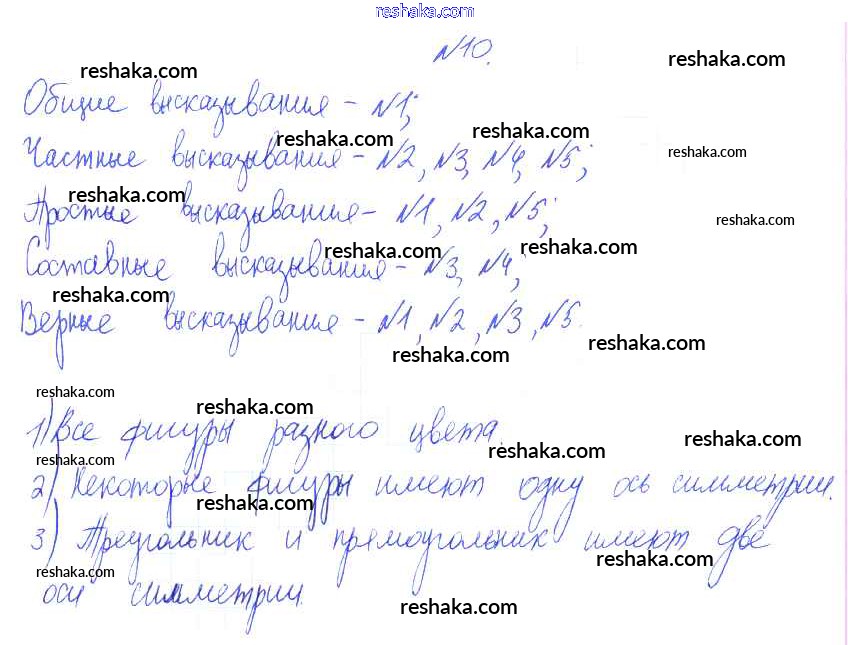 reshaka.com
№10.
reshaka.com
reshaka.com
Общие высказывания - №1;
reshaka.com
reshaka.com
Частные высказывания - №2, №3, №4, №5;
reshaka.com
reshaka.com
Простые высказывания - №1, №2, №5;
reshaka.com
reshaka.com
reshaka.com
Составные высказывания - №3, №4;
reshaka.com
Верные высказывания - №1, №2, №3, №5.
reshaka.com
reshaka.com
reshaka.com
reshaka.com
1) Все фигуры разного цвета.
reshaka.com
reshaka.com
reshaka.com
2) Некоторые фигуры имеют одну ось симметрии.
reshaka.com
3) Треугольник и прямоугольник имеют две
reshaka.com
reshaka.com
оси симметрии.
reshaka.com